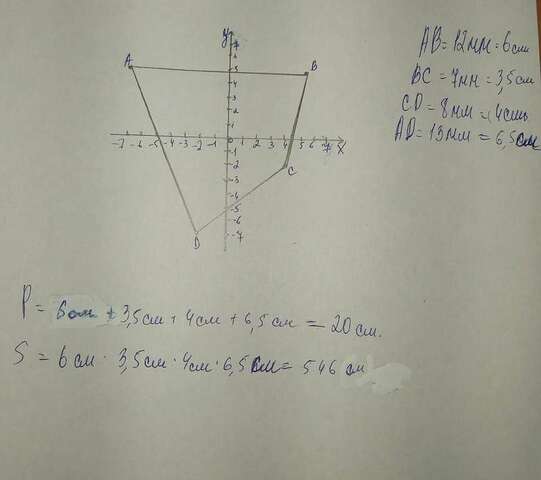 AB = 12мм = 6см
BC = 7мм = 3,5см
CD = 8мм = 4см
AD = 13мм = 6,5см
y
7
6
5
4
3
2
1
A
B
-7 -6 -5 -4 -3 -2 -1 1 2 3 4 5 6 7 X
-1
-2
-3
-4
-5
-6
-7
C
D
P = 6см + 3,5см + 4см + 6,5см = 20см.
S = 6см · 3,5см · 4см · 6,5см = 546 см